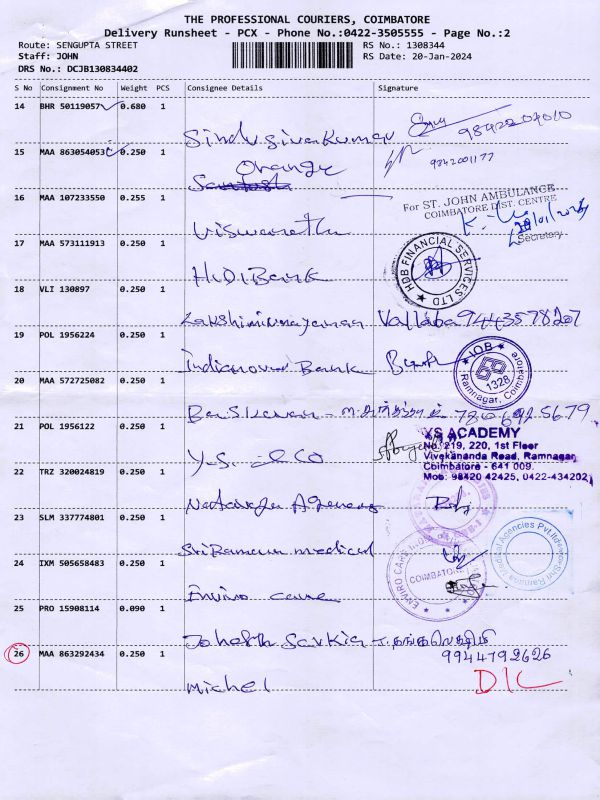 THE PROFESSIONAL COURIERS, COIMBATORE
Delivery Runsheet - PCX - Phone No.:0422-3505555 - Page No.:2
Route: SENGUPTA STREET
RS No.: 1308344
Staff: JOHN
RS Date: 20-Jan-2024
DRS No.: DCJB130834402
S No Consignment No Weight PCS Consignee Details Signature
14 BHR 50119057 0.680 1
Sindu Sivakumar
15 MAA 863054053 0.250 1
Orange 9842001177
16 MAA 107233550 0.255 1
For ST. JOHN AMBULANCE
COIMBATORE DIST. CENTRE
Secretary
Viswanath
17 MAA 573111913 0.250 1
HDB FINANCIAL SERVICES LTD
18 VLI 130897 0.250 1
Vallaba 9443578207
19 POL 1956224 0.250 1
Bank
IOB
1328
Ramnagar, Coimbatore
20 MAA 572725082 0.250 1
21 POL 1956122 0.250 1
YS ACADEMY
No. 219, 220, 1st Floor
Vivekananda Road, Ramnagar
Coimbatore - 641 009.
Mob: 98420 42425, 0422-434202
22 TRZ 320024819 0.250 1
Agencies
23 SLM 337774801 0.250 1
Medical Agencies Pvt.ltd
medical
24 IXM 505658483 0.250 1
ENVIRO CARE
COIMBATORE
Enviro care
25 PRO 15908114 0.090 1
9944792626
26 MAA 863292434 0.250 1
Michel DIL